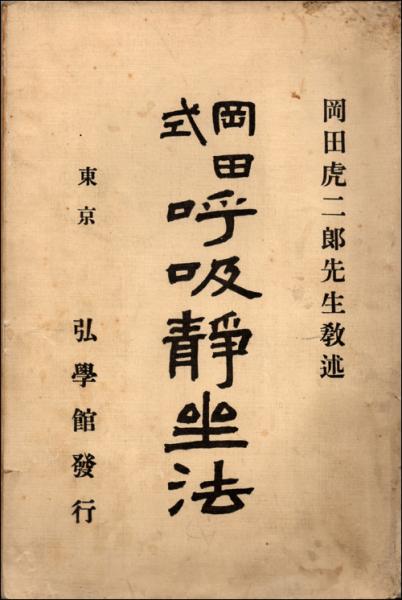 岡田虎二郎先生教述
岡田式
呼吸靜坐法
東京 弘學館發行